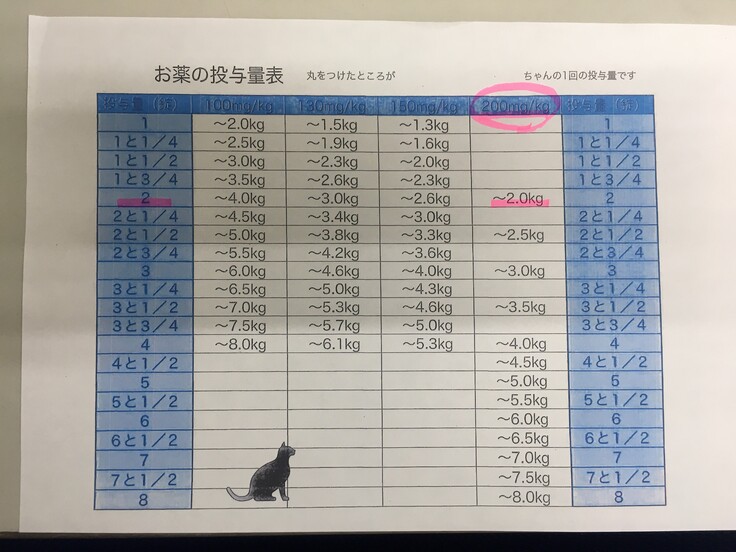 お薬の投与量表 丸をつけたところが ちゃんの1回の投与量です
投与量（錠） 100mg/kg 130mg/kg 150mg/kg 200mg/kg 投与量（錠）
1 〜2.0kg 〜1.5kg 〜1.3kg 1
1と1／4 〜2.5kg 〜1.9kg 〜1.6kg 1と1／4
1と1／2 〜3.0kg 〜2.3kg 〜2.0kg 1と1／2
1と3／4 〜3.5kg 〜2.6kg 〜2.3kg 1と3／4
2 〜4.0kg 〜3.0kg 〜2.6kg 〜2.0kg 2
2と1／4 〜4.5kg 〜3.4kg 〜3.0kg 2と1／4
2と1／2 〜5.0kg 〜3.8kg 〜3.3kg 〜2.5kg 2と1／2
2と3／4 〜5.5kg 〜4.2kg 〜3.6kg 2と3／4
3 〜6.0kg 〜4.6kg 〜4.0kg 〜3.0kg 3
3と1／4 〜6.5kg 〜5.0kg 〜4.3kg 3と1／4
3と1／2 〜7.0kg 〜5.3kg 〜4.6kg 〜3.5kg 3と1／2
3と3／4 〜7.5kg 〜5.7kg 〜5.0kg 3と3／4
4 〜8.0kg 〜6.1kg 〜5.3kg 〜4.0kg 4
4と1／2 〜4.5kg 4と1／2
5 〜5.0kg 5
5と1／2 〜5.5kg 5と1／2
6 〜6.0kg 6
6と1／2 〜6.5kg 6と1／2
7 〜7.0kg 7
7と1／2 〜7.5kg 7と1／2
8 〜8.0kg 8